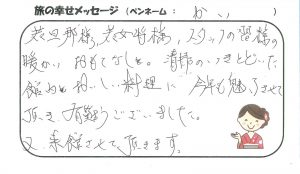 旅の幸せメッセージ（ペンネーム： かい ）
若旦那様、若女将様、スタッフの皆様の
暖かいおもてなしと。清掃のいきとどいた
館内と おいしい料理に 今年も魅了させて
頂き、有難うございました。
又、来館させて頂きます。